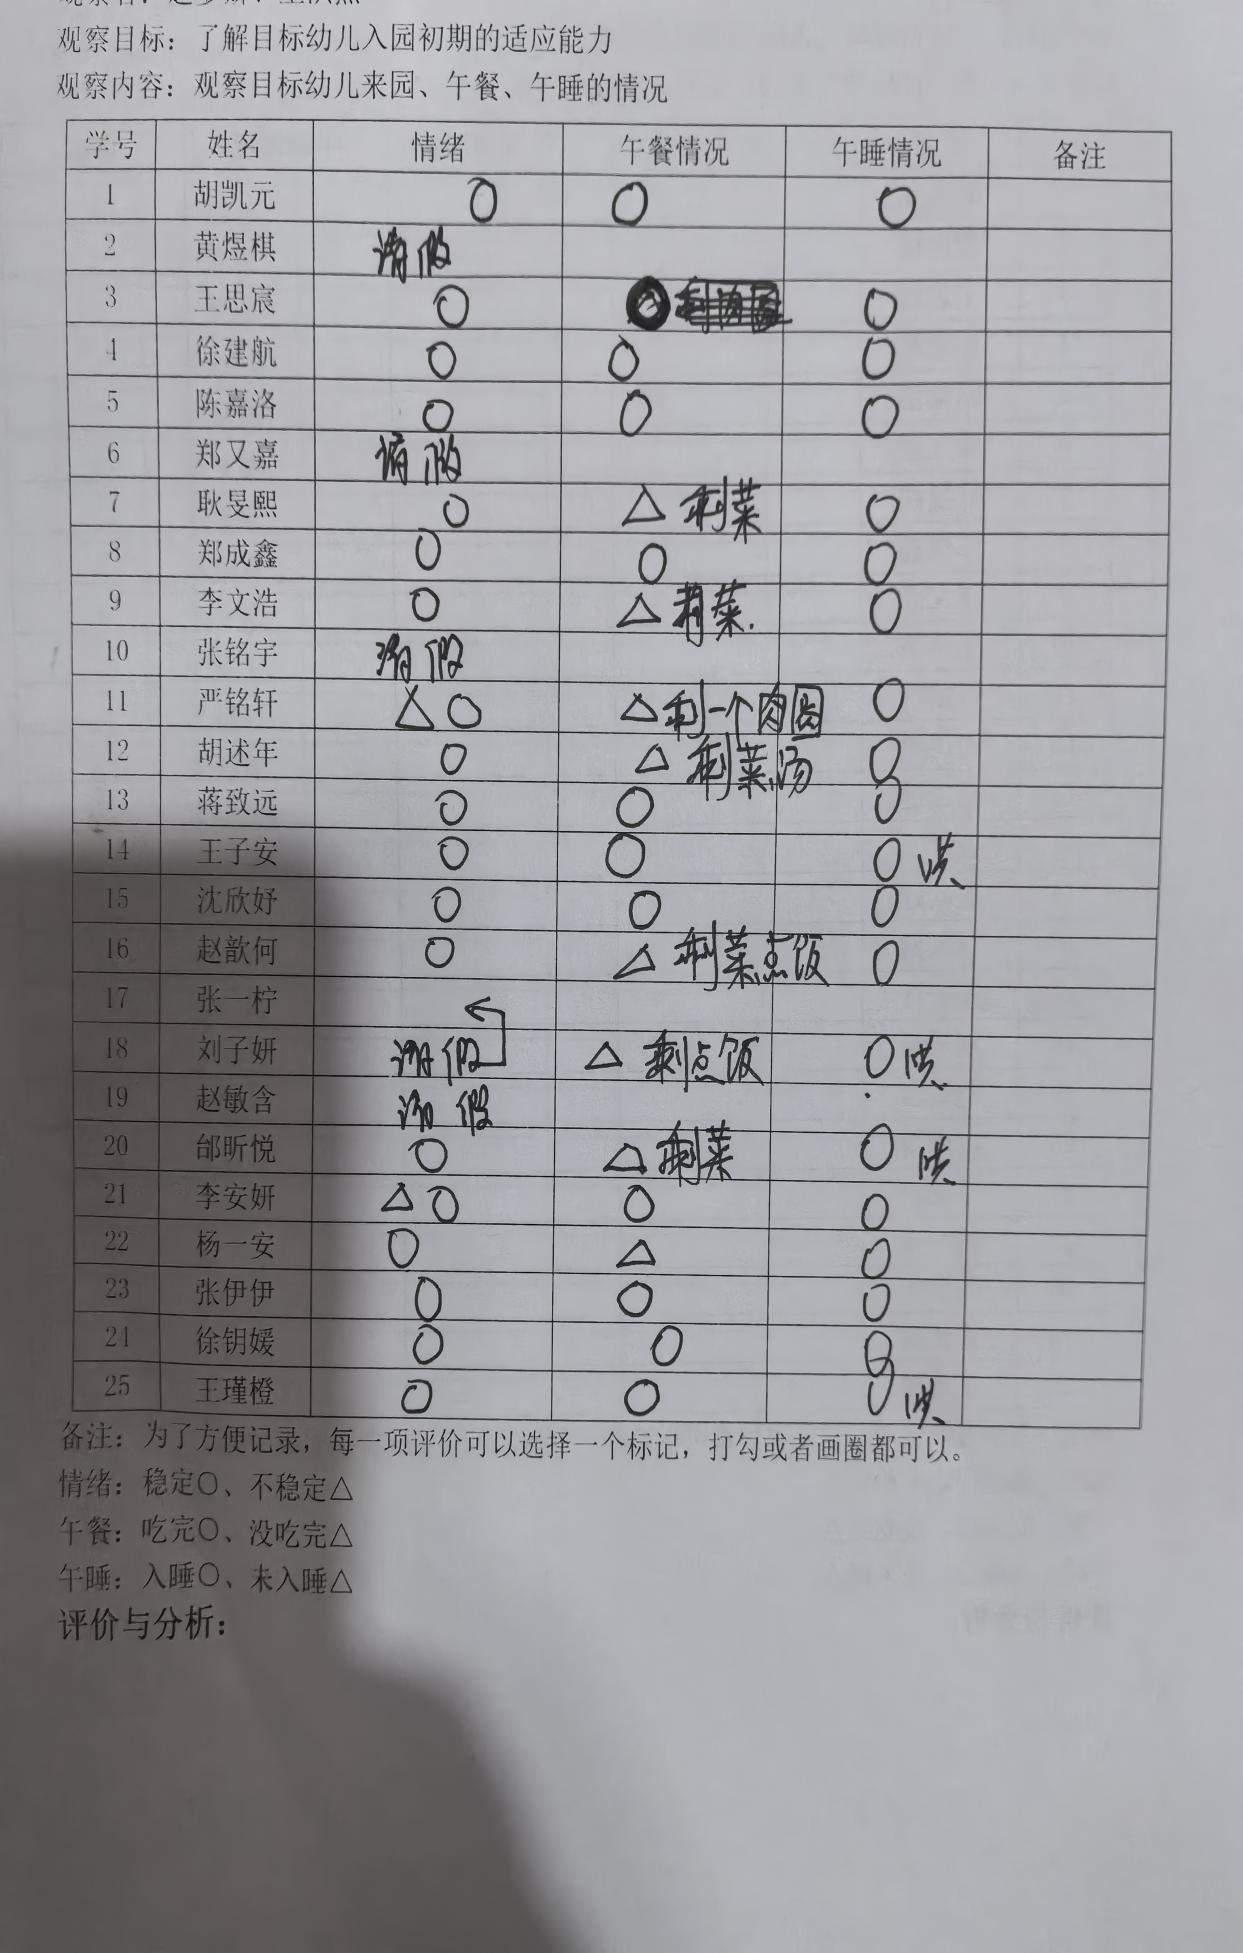 观察目标：了解目标幼儿入园初期的适应能力
观察内容：观察目标幼儿来园、午餐、午睡的情况
学号 姓名 情绪 午餐情况 午睡情况 备注
1 胡凯元 〇 〇 〇
2 黄煜棋 请假
3 王思宸 〇 〇
4 徐建航 〇 〇 〇
5 陈嘉洛 〇 〇 〇
6 郑又嘉 请假
7 耿旻熙 〇 △ 剩菜 〇
8 郑成鑫 〇 〇 〇
9 李文浩 〇 △ 剩菜. 〇
10 张铭宇 请假
11 严铭轩 △ 〇 △ 剩一个肉圆 〇
12 胡述年 〇 △ 剩菜、汤 〇
13 蒋致远 〇 〇 〇
14 王子安 〇 〇 〇 哄
15 沈欣妤 〇 〇 〇
16 赵歆何 〇 △ 剩菜点饭 〇
17 张一柠
18 刘子妍 请假 △ 剩点饭 〇 哄
19 赵敏含 请假
20 邰昕悦 〇 △ 剩菜 〇 哄
21 李安妍 △ 〇 〇 〇
22 杨一安 〇 △ 〇
23 张伊伊 〇 〇 〇
24 徐钥媛 〇 〇 〇
25 王瑾橙 〇 〇 〇 哄
备注：为了方便记录，每一项评价可以选择一个标记，打勾或者画圈都可以。
情绪：稳定〇、不稳定△
午餐：吃完〇、没吃完△
午睡：入睡〇、未入睡△
评价与分析：